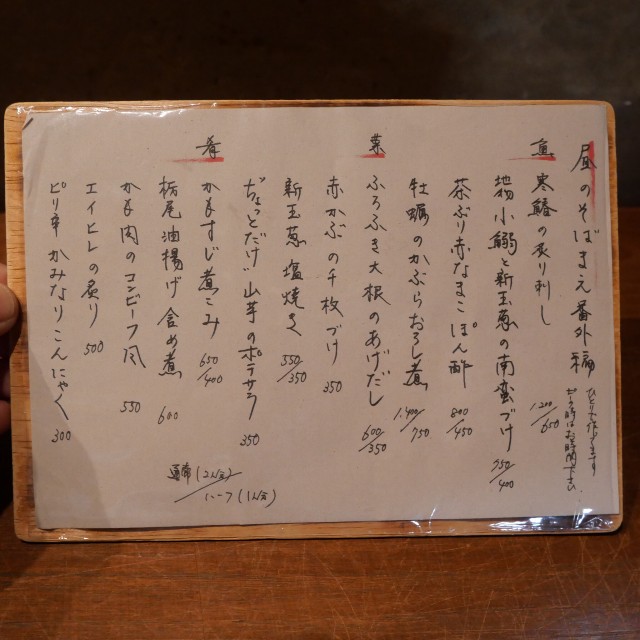 昼のそばまえ番外編
ひとりで作ってます
お時間下さい
魚
寒鰆の炙り刺し 1.200/650
地物小鰯と新玉葱の南蛮づけ 750/400
茶ぶり赤なまこぽん酢 800/450
牡蠣のかぶらおろし煮 1.400/750
菜
ふろふき大根のあげだし 600/350
赤かぶの千枚づけ 350
新玉葱塩焼き 550/350
“ちょっとだけ”山芋のポテサラ 350
肴
かもすじ煮こみ 650/400
栃尾油揚げ含め煮 600
かも肉のコンビーフ風 550
エイヒレの炙り 500
ピリ辛かみなりこんにゃく 300
通常(2人前)/ハーフ(1人前)